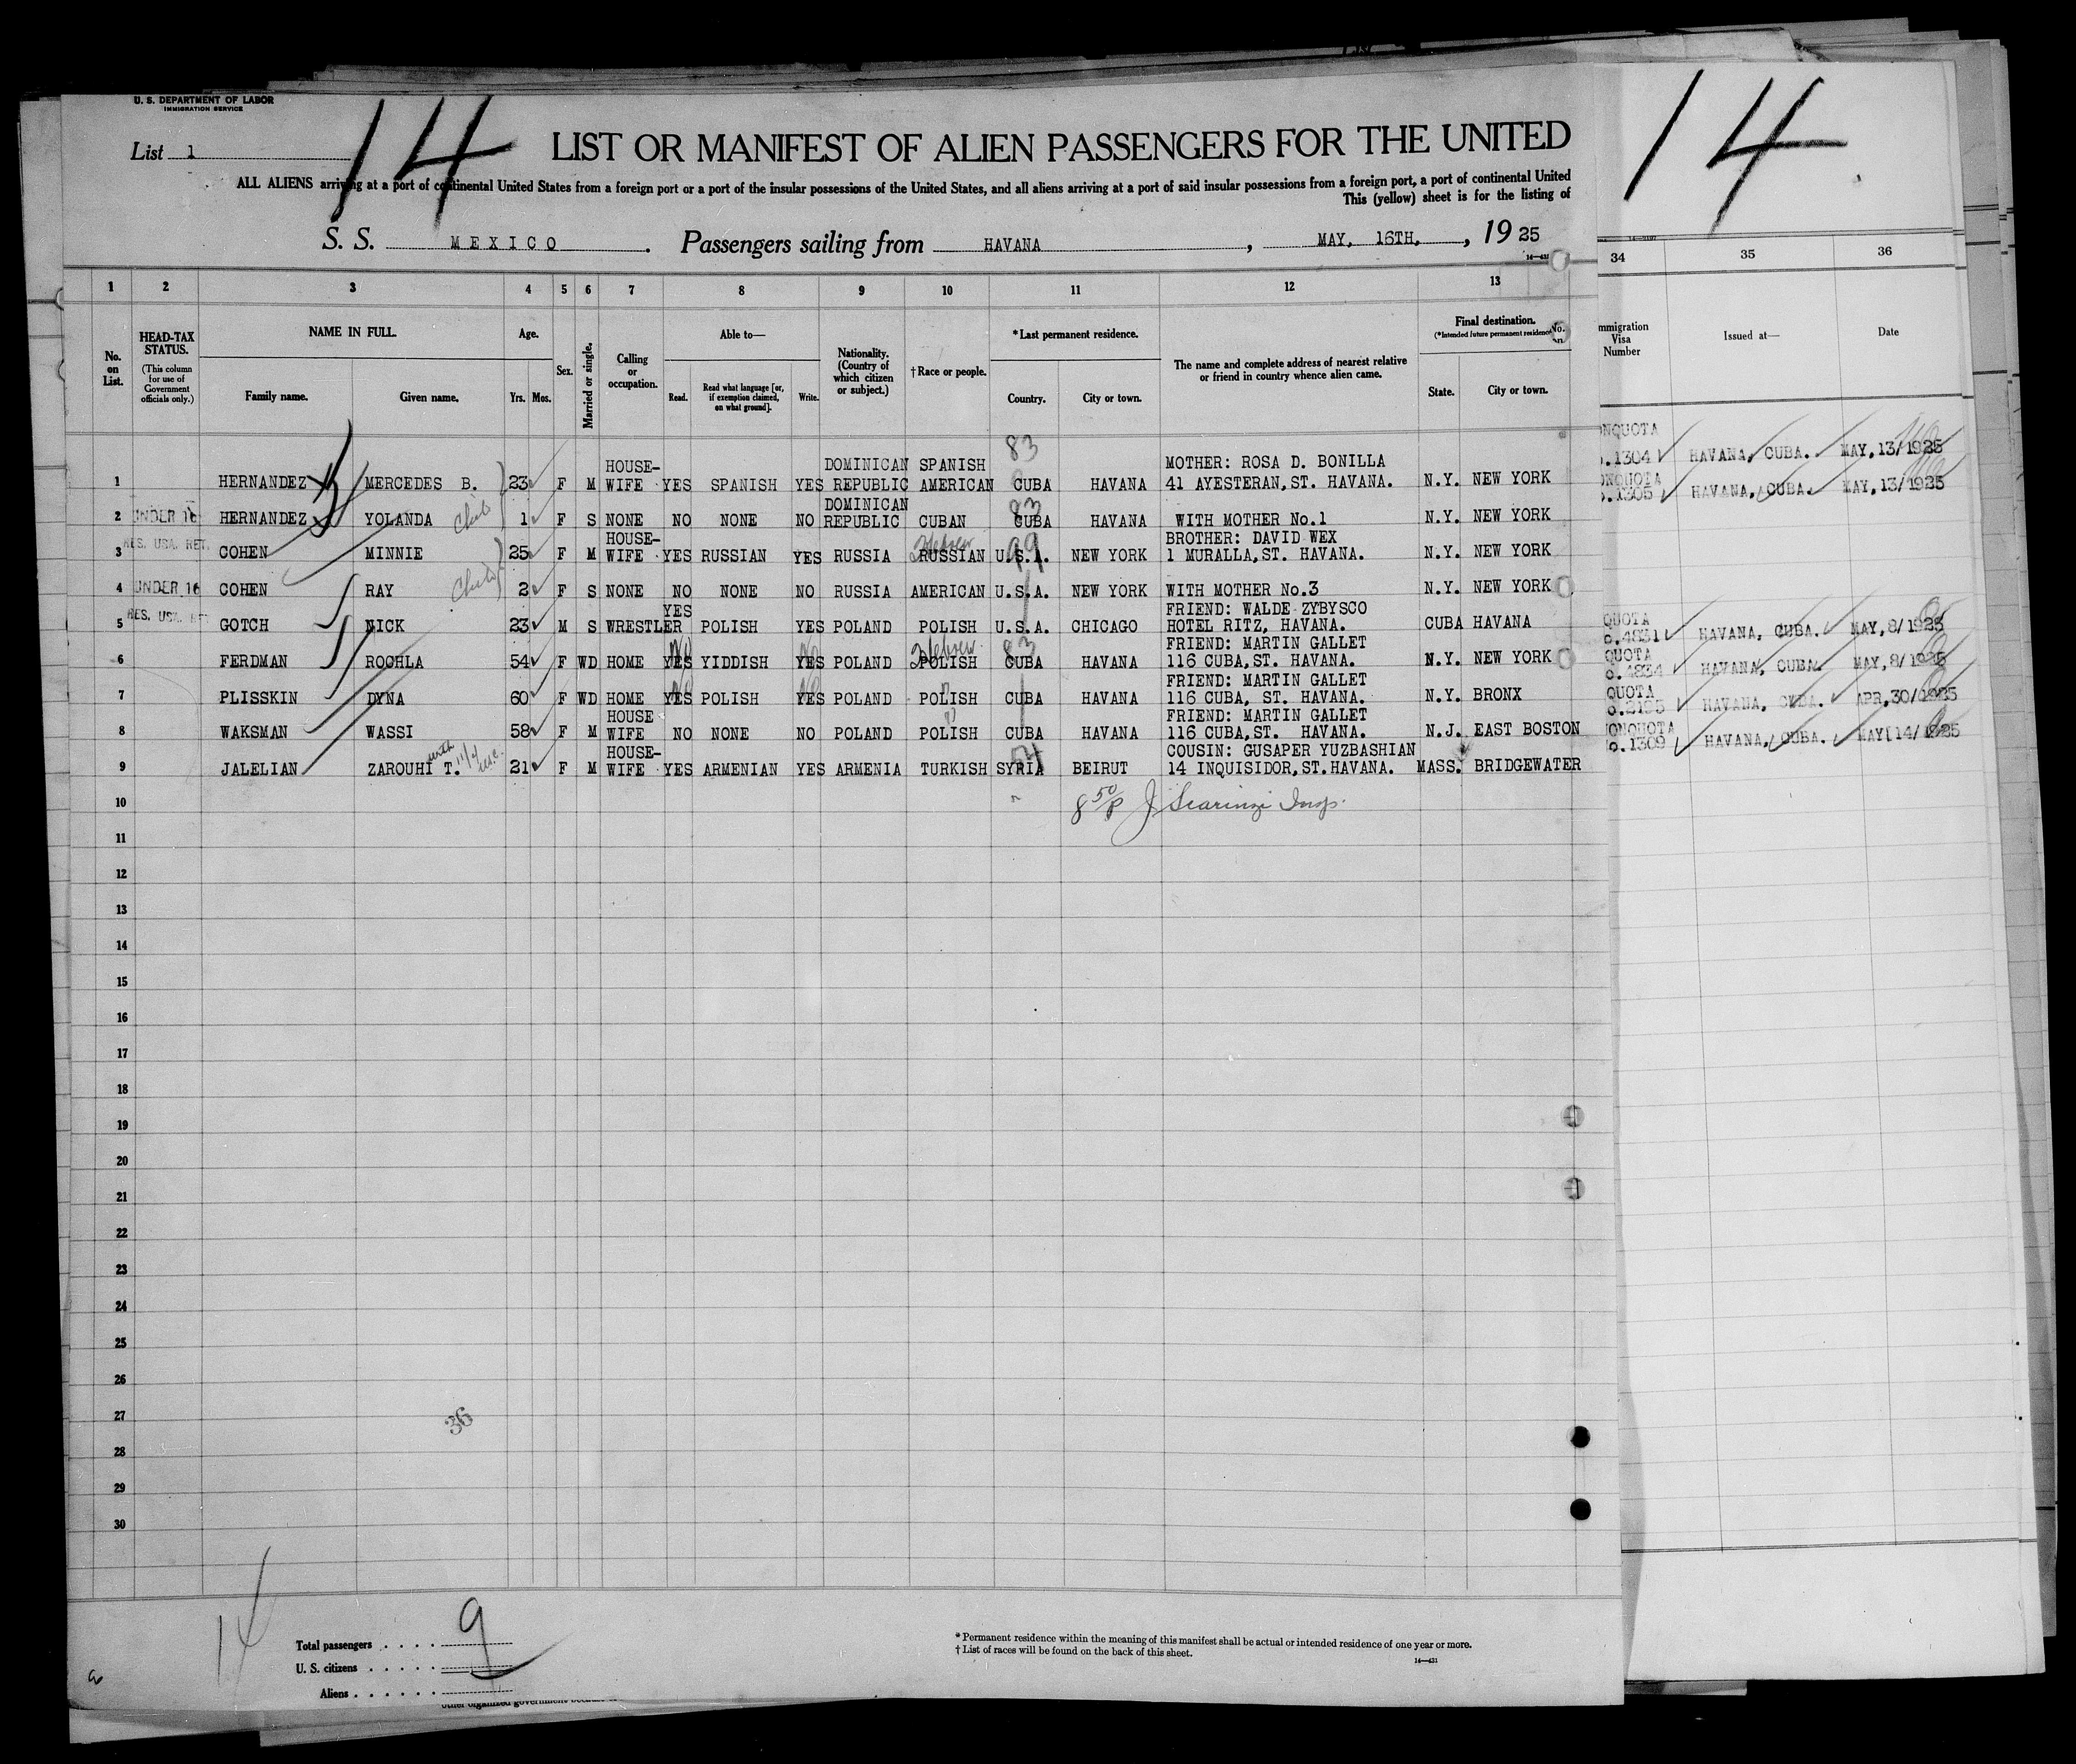 U. S. DEPARTMENT OF LABOR
IMMIGRATION SERVICE
List 1
14
LIST OR MANIFEST OF ALIEN PASSENGERS FOR THE UNITED
ALL ALIENS arriving at a port of continental United States from a foreign port or a port of the insular possessions of the United States, and all aliens arriving at a port of said insular possessions from a foreign port, a port of continental United
This (yellow) sheet is for the listing of
S. S. MEXICO. Passengers sailing from HAVANA, MAY, 16TH, , 19 25
14
1 2 3 4 5 6 7 8 9 10 11 12 13 34 35 36
No. on List.
HEAD-TAX STATUS.
(This column for use of Government officials only.)
NAME IN FULL.
Family name. Given name.
Age.
Yrs. Mos.
Sex.
Married or single.
Calling or occupation.
Able to—
Read. Read what language [or, if exemption claimed, on what ground]. Write.
Nationality. (Country of which citizen or subject.)
† Race or people.
*Last permanent residence.
Country. City or town.
The name and complete address of nearest relative or friend in country whence alien came.
Final destination.
(*Intended future permanent residence)
State. City or town.
mmigration Visa Number
Issued at—
Date
1 HERNANDEZ MERCEDES B. 23 F M HOUSE-WIFE YES SPANISH YES DOMINICAN REPUBLIC SPANISH AMERICAN 83 CUBA HAVANA MOTHER: ROSA D. BONILLA 41 AYESTERAN,ST. HAVANA. N.Y. NEW YORK NQUOTA 1304 HAVANA, CUBA. MAY,13/1925
2 UNDER 16 HERNANDEZ YOLANDA Child 1 F S NONE NO NONE NO DOMINICAN REPUBLIC CUBAN 83 CUBA HAVANA WITH MOTHER No.1 N.Y. NEW YORK ONQUOTA 1305 HAVANA, CUBA. MAY,13/1925
3 RES. USA. RET. COHEN MINNIE 25 F M HOUSE-WIFE YES RUSSIAN YES RUSSIA Hebrew RUSSIAN 99 U.S.A. NEW YORK BROTHER: DAVID WEX 1 MURALLA,ST. HAVANA. N.Y. NEW YORK
4 UNDER 16 COHEN RAY Child 2 F S NONE NO NONE NO RUSSIA AMERICAN U.S.A. NEW YORK WITH MOTHER No.3 N.Y. NEW YORK
5 RES. USA. RET GOTCH NICK 23 M S WRESTLER YES POLISH YES POLAND POLISH U.S.A. CHICAGO FRIEND: WALDE ZYBYSCO HOTEL RITZ, HAVANA. CUBA HAVANA QUOTA o.4831 HAVANA, CUBA. MAY,8/1925
6 FERDMAN ROCHLA 54 F WD HOME No YES YIDDISH No YES POLAND Hebrew POLISH 83 CUBA HAVANA FRIEND: MARTIN GALLET 116 CUBA,ST. HAVANA. N.Y. NEW YORK QUOTA o.4834 HAVANA, CUBA. MAY,8/1925
7 PLISSKIN DYNA 60 F WD HOME No YES POLISH No YES POLAND POLISH CUBA HAVANA FRIEND: MARTIN GALLET 116 CUBA, ST. HAVANA. N.Y. BRONX QUOTA o.2195 HAVANA, CUBA. APR,30/1925
8 WAKSMAN WASSI 58 F M HOUSE WIFE NO NONE NO POLAND POLISH CUBA HAVANA FRIEND: MARTIN GALLET 116 CUBA,ST. HAVANA. N.J. EAST BOSTON ONQUOTA o.1309 HAVANA, CUBA. MAY[14/1925
9 JALELIAN ZAROUHI T. 21 F M HOUSE-WIFE YES ARMENIAN YES ARMENIA TURKISH 54 SYRIA BEIRUT COUSIN: GUSAPER YUZBASHIAN 14 INQUISIDOR,ST.HAVANA. MASS. BRIDGEWATER
10 8 50/P J Scarinzi Insp.
11
12
13
14
15
16
17
18
19
20
21
22
23
24
25
26
27
36
28
29
30
14
Total passengers . . . . 9
U. S. citizens . . . . .
Aliens . . . . . .
* Permanent residence within the meaning of this manifest shall be actual or intended residence of one year or more.
† List of races will be found on the back of this sheet.
14—431